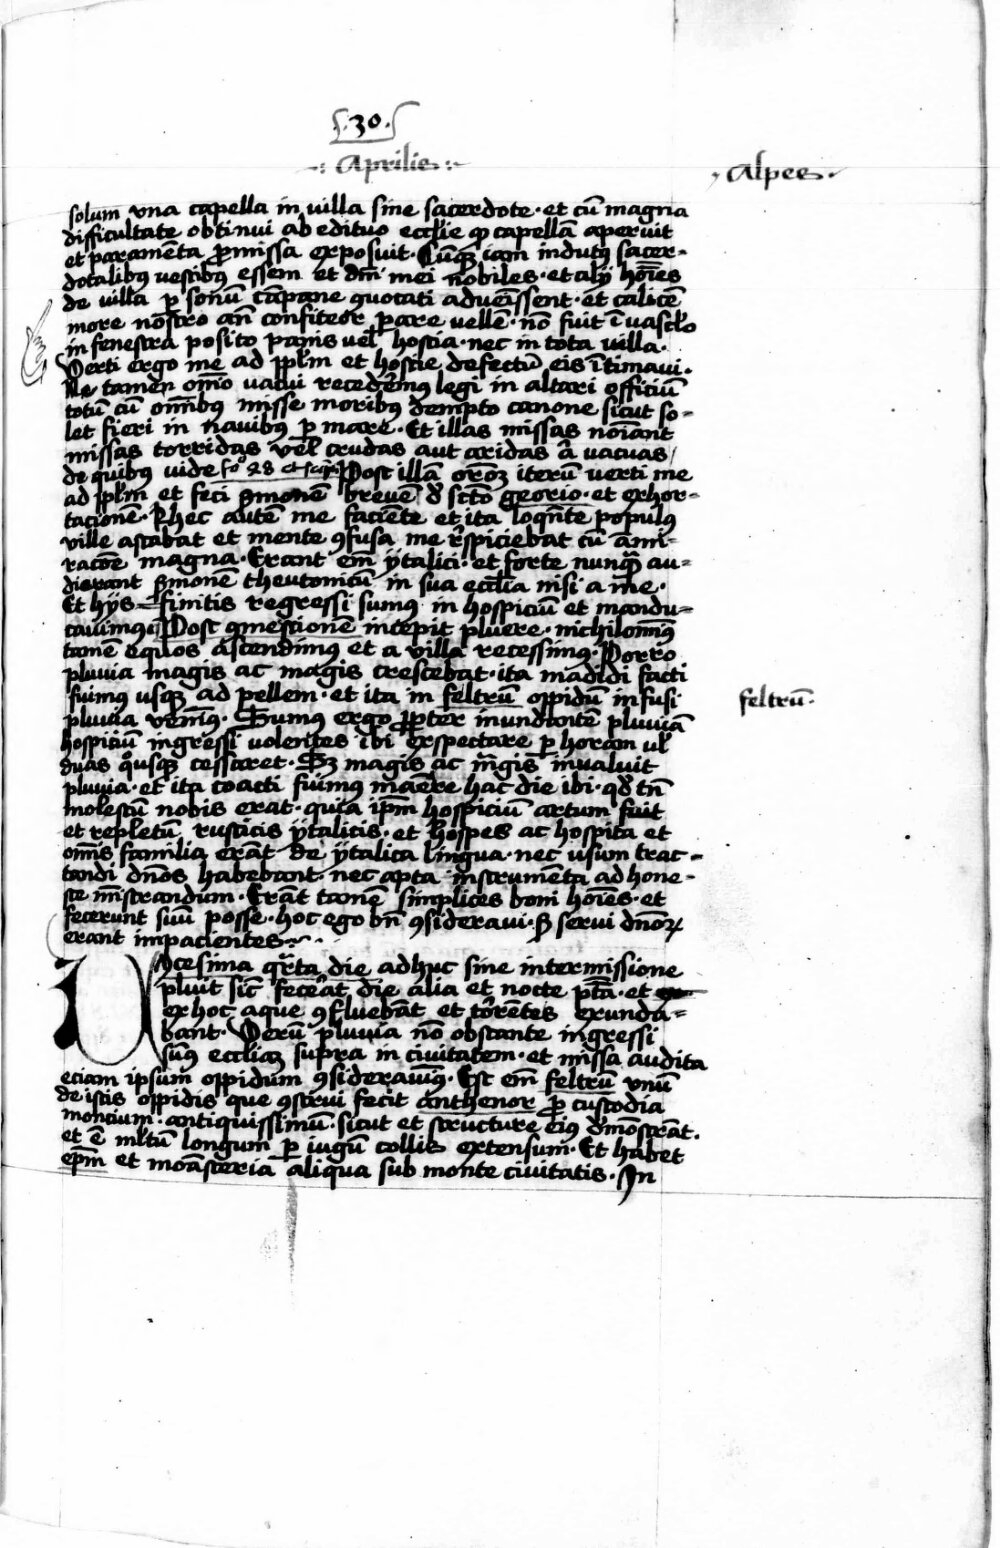 .30.
Aprilis
Alpes
solum vna capella in villa sine sacerdote · et cū magna
difficultate obtinui ab edituo ecclīe qȝ capellā aperuit
et paramēta p̄missa exposuit · Cūqȝ iam indutꝰ sacer-
dotalibꝰ vestibꝰ essem et dn̄i mei nobiles · et alij hoīes
de villa ꝑ sonū cāpane quotati aduēissent · et calicē
more nostro an̄ confiteor ꝑare vellē · nō fuit ī vasclo
in fenestra posito panis vel hostia · nec in tota villa ·
Verti ergo me ad pplm et hostie defectū eis ītimaui ·
Ne tamen om̄io vacui recederemus legi in altari officiū
totū cū om̄ibꝰ misse moribꝰ dempto canone sicut so-
let fieri in nauibꝰ ꝑ mare · Et illas missas noīant
missas torridas vel crudas aut aridas ā vacuas
de quibus vide fo 28 Post illā iterū verti me
ad pplm et feci ẜmonē breuē d̄ sctō georio · et exhor-
tacionē · hec autē me faciēte et ita loqn̄te populꝰ
ville astabat et mente ꝯfusa me rspiciebat cū āmi-
racōe magna · Erant em̄ ytalici · et forte nunqȝ au-
dierant ẜmonē theutonicū in sua ecclīa nisi a me ·
Et hijs finitis regressi sumus in hospiciū et mandu-
cauimus Post ꝯmestionē incepit pluere · nichilomīꝰ
tamē equos ascendimus et a villa recessimus · Porro
pluuia magis ac magis crescebat · ita madidi facti
fuimus usqȝ ad pellem · et ita in feltrū oppidū infusi
feltrū ·
pluuia venimꝰ · Sumus ergo ꝓpter inundantē pluuiā
hospiciū ingressi volentes ibi expectare ꝑ horam vl
duas qousqȝ cessaret · Sȝ magis ac magis inualuit
pluuia · et ita coacti fuimus manēre hac die ibi · qd tn̄
molestū nobis erat · quia ipm̄ hospiciū artum fuit
et repletū rusticis ytalicis · et hospes ac hospita et
om̄is familia erāt de ytalica lingua · nec usum trac-
tandi dn̄os habebant · nec apta instrumēta ad hone-
ste ministrandum · Erāt tamē simplices boni hoīes · et
fecerunt suū posse · hoc ego bn̄ ꝯsideraui · ꝫ serui dn̄oꝝ
erant impacientes ·
Vicesima qrta die adhuc sine intermissione
pluit sic̄ fecerat die alia et nocte p̄tā · et
ex hoc aque ꝯfluebāt et torētes exunda-
bant · Verū pluuia nō obstante ingressi
sumꝰ eccliaȝ supra in ciuitatem · et missa audita
eciam ipsum oppidum ꝯsiderauimꝰ · Est em̄ feltrū vnū
de istis oppidis que ꝯstrui fecit anthenor ꝓ custodia
moncium · antiquissimū · sicut et structure eiꝰ dmostrāt ·
et ē mltū longum ꝑ iugū collis extensum · Et habet
epm̄ et moāsteria aliqua sub monte ciuitatis · In